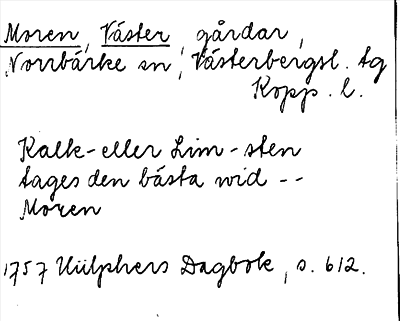 Moren, Väster gårdar,
Norrbärke sn, Västerbergsl. tg
Kopp. l.
Kalk- eller Lim-sten
tages den bästa wid --
Moren
1757 Hülphers Dagbok, s. 612.